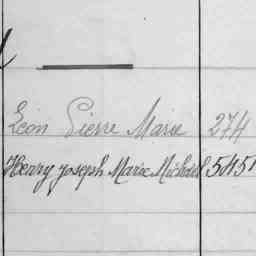 Léon Pierre Marie 274
Henry Joseph Marie Michel 5451